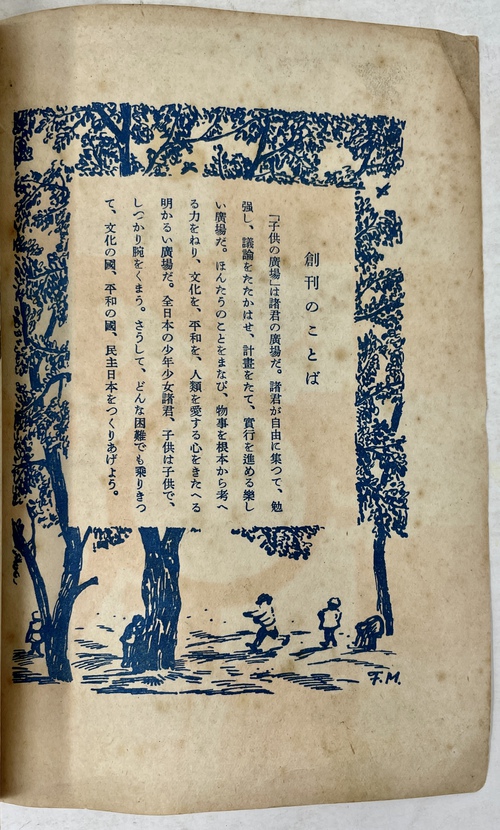 創刊のことば
「子供の廣場」は諸君の廣場だ。諸君が自由に集つて、勉
强し、議論をたたかはせ、計畫をたて、實行を進める樂し
い廣場だ。ほんたうのことをまなび、物事を根本から考へ
る力をねり、文化を、平和を、人類を愛する心をきたへる
明かるい廣場だ。全日本の少年少女諸君、子供は子供で、
しつかり腕をくまう。さうして、どんな困難でも乘りきつ
て、文化の國、平和の國、民主日本をつくりあげよう。
F.M.